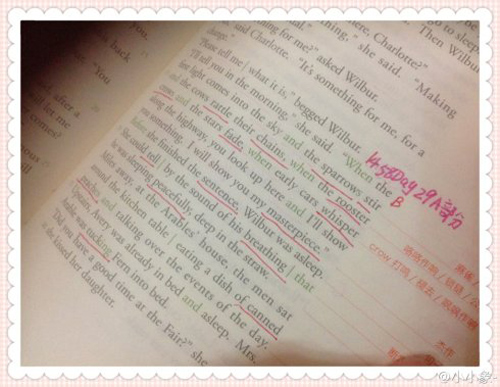 you.
back
"You
after a
let me
comes!
ous
ill
go to sleep
Then Wilbur
"Making
here, Charlotte?"
thing," she said.
"It's something for me, for a
ing for me?" asked Wilbur.
said Charlotte.
change."
"Please tell me what it is," begged Wilbur.
"I'll tell you in the morning," she said. "When the
first light comes into the sky and the sparrows stir
and the cows rattle their chains, when the rooster
crows and the stars fade, when early cars whisper
along the highway, you look up here and I'll show
you something. I will show you my masterpiece."
she finished the sentence, Wilbur was asleep.
She could tell by the sound of his breathing that
he was sleeping peacefully, deep in the straw.
Miles away, at the Arables' house, the men sat
around the kitchen table eating a dish of canned
peaches and talking over the events of the day.
Upstairs, Avery was already in bed and asleep. Mrs.
Arable was tucking Fern into bed.
"Did you have a good time at the Fair?" she
as she kissed her daughter.
Day29
B
麻雀
crow 打鸣
杰作
@小小象